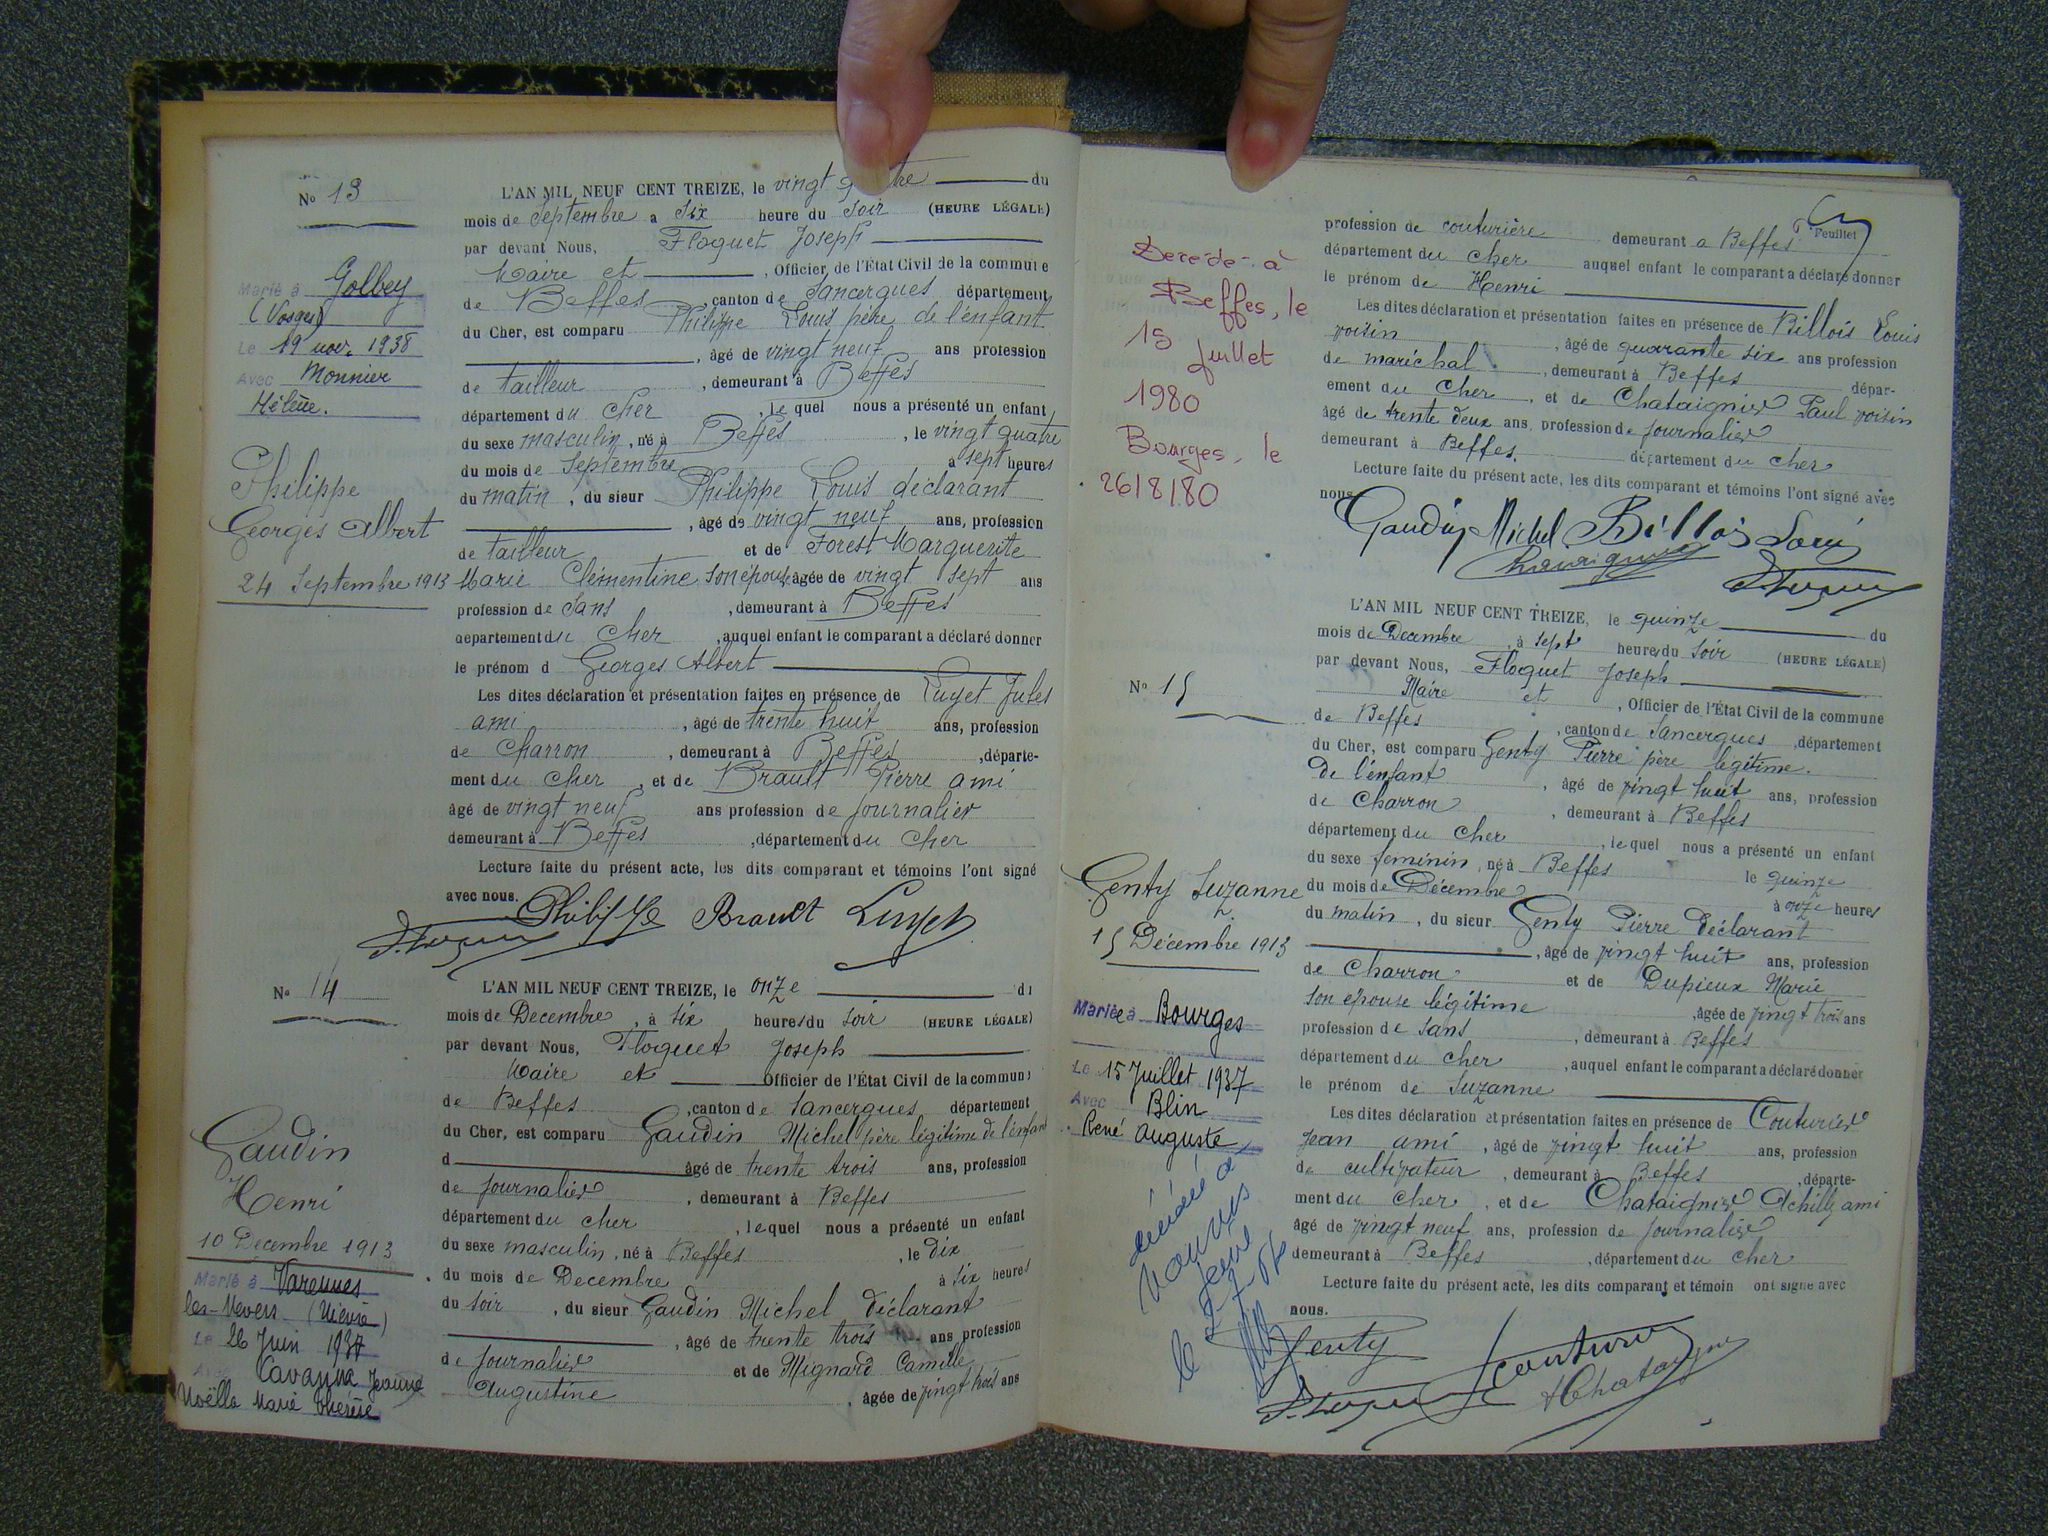 No 13
Marié à Golbey
(Vosges)
Le 19 nov. 1938
Avec Monnier
Hélène.
Philippe
Georges Albert
24 Septembre 1913
L'AN MIL NEUF CENT TREIZE, le vingt quatre du
mois de Septembre a Six heure du soir (HEURE LÉGALE)
par devant Nous, Floquet Joseph
Maire et , Officier de l'État Civil de la commune
de Beffes , canton de Sancergues département
du Cher, est comparu Philippe Louis père de l'enfant
, âgé de vingt neuf ans profession
de tailleur , demeurant à Beffes
département du Cher , le quel nous a présenté un enfant
du sexe masculin, né à Beffes , le vingt quatre
du mois de Septembre à sept heures
du matin , du sieur Philippe Louis déclarant
, âgé de vingt neuf ans, profession
de tailleur et de Forest Marguerite
Marie Clémentine son épouse âgée de vingt sept ans
profession de Sans , demeurant à Beffes
département du Cher , auquel enfant le comparant a déclaré donner
le prénom d Georges Albert
Les dites déclaration et présentation faites en présence de Luyet Jules
ami , âgé de trente huit ans, profession
de Charron , demeurant à Beffes ,départe-
ment du Cher , et de Brault Pierre ami
âgé de vingt neuf ans profession de journalier
demeurant à Beffes , département du Cher
Lecture faite du présent acte, les dits comparant et témoins l'ont signé
avec nous. Philippe Brault Luyet
No 14
Gaudin
Henri
10 Décembre 1913
Marié à Varennes
les-Nevers (Nièvre)
Le 26 Juin 1937
Avec Jeanne
Noëlla Marie Thérèse
L'AN MIL NEUF CENT TREIZE, le onze du
mois de Decembre , à six heures du soir (HEURE LÉGALE)
par devant Nous, Floquet Joseph
Maire et Officier de l'État Civil de la commune
de Beffes , canton de Sancergues département
du Cher, est comparu Gaudin Michel père légitime de l'enfant
d âgé de trente trois ans, profession
de journalier , demeurant à Beffes
département du Cher , lequel nous a présenté un enfant
du sexe masculin, né à Beffes , le dix
du mois de Decembre à six heures
du soir , du sieur Gaudin Michel déclarant
, âgé de trente trois ans profession
de journalier et de Mignard Camille
Augustine , âgée de vingt trois ans
Feuillet
Decédé à
Beffes, le
15 juillet
1980
Bourges, le
26/8/80
profession de couturière demeurant a Beffes
département du Cher auquel enfant le comparant a déclaré donner
le prénom de Henri
Les dites déclaration et présentation faites en présence de Billois Louis
voisin , âgé de quarante six ans profession
de maréchal , demeurant à Beffes dépar-
ement du Cher , et de Chataignier Paul voisin
âgé de trente deux ans, profession de journalier
demeurant à Beffes. département du Cher
Lecture faite du présent acte, les dits comparant et témoins l'ont signé avec
nous.
Gaudin Michel Billois Louis
No 15
Genty Suzanne
15 Décembre 1913
Mariée à Bourges
Le 15 Juillet 1937
Avec Blin
René Auguste
décédée à
le
L'AN MIL NEUF CENT TREIZE, le quinze du
mois de Decembre , à sept heures du soir (HEURE LÉGALE)
par devant Nous, Floquet Joseph
Maire et , Officier de l'État Civil de la commune
de Beffes , canton de Sancergues ,département
du Cher, est comparu Genty Pierre père légitime.
De l'enfant , âgé de vingt huit ans, profession
de Charron , demeurant à Beffes
département du Cher , le quel nous a présenté un enfant
du sexe feminin, né à Beffes le quinze
du mois de Décembre à onze heures
du matin , du sieur Genty Pierre Déclarant
, âgé de vingt huit ans, profession
de Charron et de Dupieux Marie
son épouse légitime ,âgée de vingt trois ans
profession de sans , demeurant à Beffes
département du Cher , auquel enfant le comparant a déclaré donner
le prénom de Suzanne
Les dites déclaration et présentation faites en présence de Couturier
Jean ami , âgé de vingt huit ans, profession
de cultivateur , demeurant à Beffes ,départe-
ment du Cher , et de Chataignier Achille ami
âgé de vingt neuf ans, profession de journalier
demeurant à Beffes , département du Cher
Lecture faite du présent acte, les dits comparant et témoin ont signé avec
nous.
Genty Couturier
A Chataignier